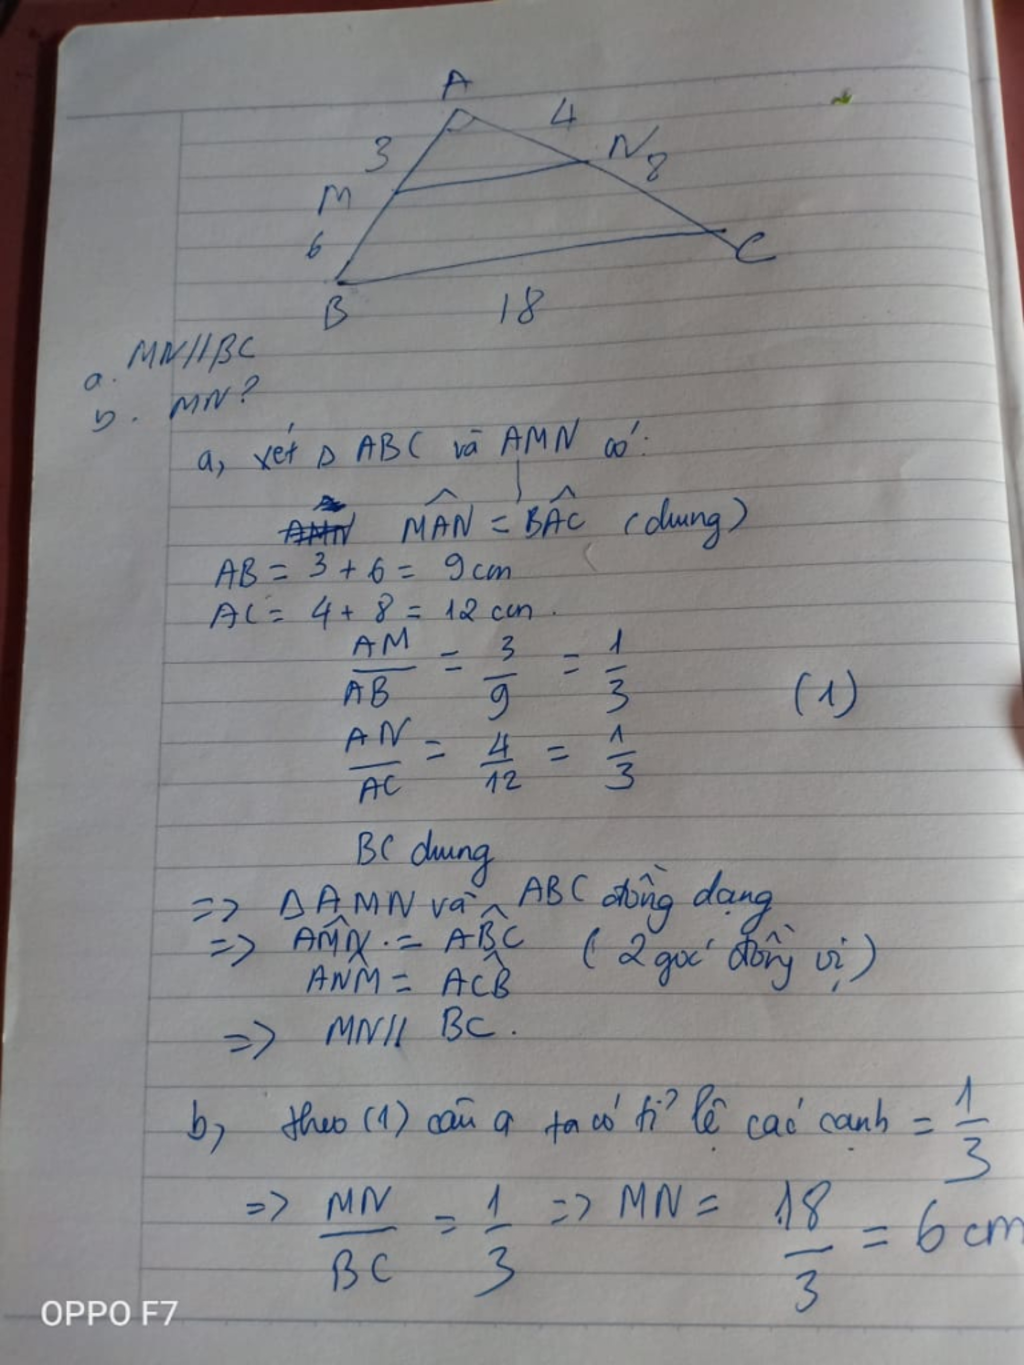 A
4
3
N
8
M
6
C
B
18
a. MN//BC
b. MN?
a, xét Δ ABC và AMN có:
AMN MÂN = BÂC (chung)
AB = 3 + 6 = 9 cm
AC = 4 + 8 = 12 cm.
AM/AB = 3/9 = 1/3
(1)
AN/AC = 4/12 = 1/3
BC chung
=> ΔAMN và ABC đồng dạng
=> AM̂N = AB̂C (2 góc đồng vị)
AN̂M = AĈB
=> MN// BC.
b, theo (1) câu a ta có tỉ lệ các cạnh = 1/3
=> MN/BC = 1/3 => MN = 18/3 = 6 cm
OPPO F7